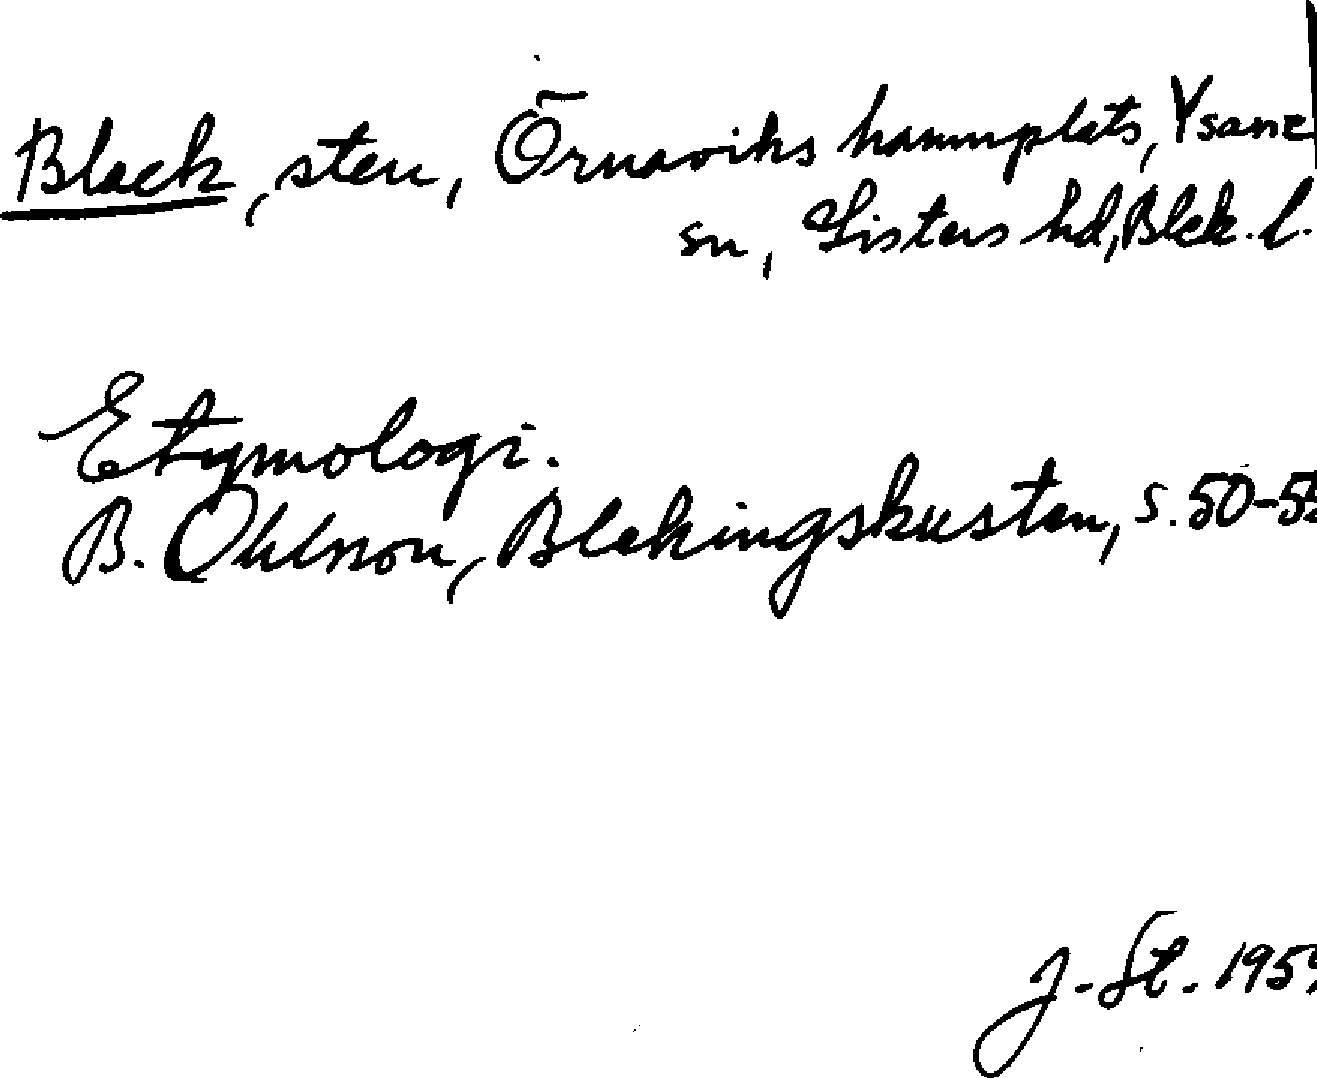 Black, sten, Örnaviks hamnplats, Ysane
sn, Listers hd, Blek. l.
Etymologi.
B. Ohlson, Blekingskusten, s. 50-
J. St.